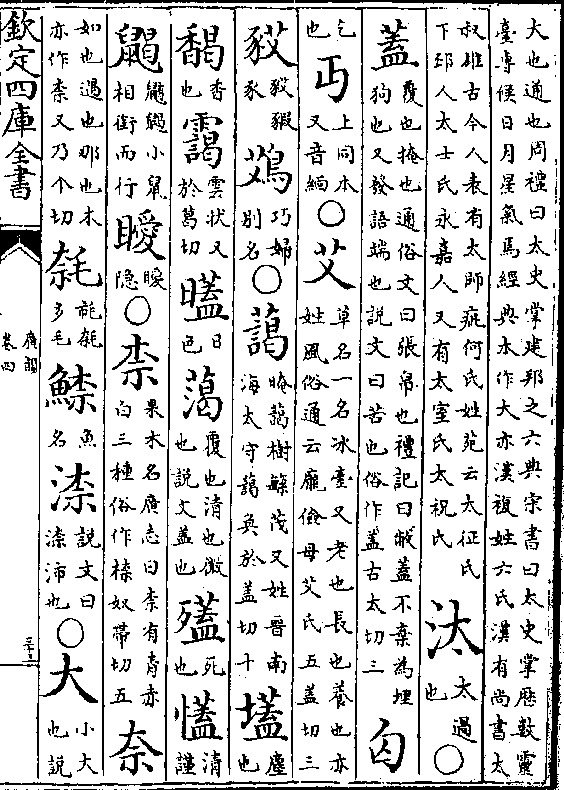 大也通也周禮曰太史掌建邦之六典宋書曰太史掌歷數靈
臺專候日月星氣焉經典本作大亦漢複姓六氏漢有尚書太
叔雄古今人表有太師疵何氏姓苑云太征氏
下邳人太士氏永嘉人又有太室氏太祝氏 汰 太過也 ○
蓋 覆也掩也通俗文曰張帛也禮記曰敝蓋不棄為埋
狗也又發語端也說文曰苫也俗作盖古太切三 匄
乞也 丐 上同本又音緬 ○ 艾 草名一名冰臺又老也長也養也亦
姓風俗通云龐儉母艾氏五蓋切三
䝅 䝅豭豕 鴱 巧婦別名 ○ 藹 晻藹樹繁茂又姓晉南
海太守藹奐於蓋切十 壒 塵也
馤 香也 靄 雲狀又於葛切 㬣 日色 蔼 覆也清也微
也說文蓋也 㱲 死也 㦣 清謹
鼿 鼿小鼠相銜而行 曖 曖隱 ○ 柰 果木名廣志曰柰有青赤
白三種俗作㮈奴帶切五 奈
如也遇也那也本
亦作柰又乃个切 㲡 㲡多毛 䱞 魚名 渿 說文曰
渿沛也 ○ 大 小大
也說
欽定四庫全書
廣韻
卷四